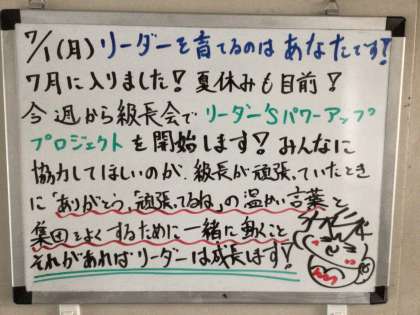 7/1(月)リーダーを育てるのは あなたです!
7月に入りました!夏休みも目前!
今週から級長会でリーダー'Sパワーアップ
プロジェクトを開始します!みんなに
協力してほしいのが、級長が頑張っていたとき
に「ありがとう、頑張ってるね」の温かい言葉と
集団をよくするために一緒に動くこと
それがあればリーダーは成長します!